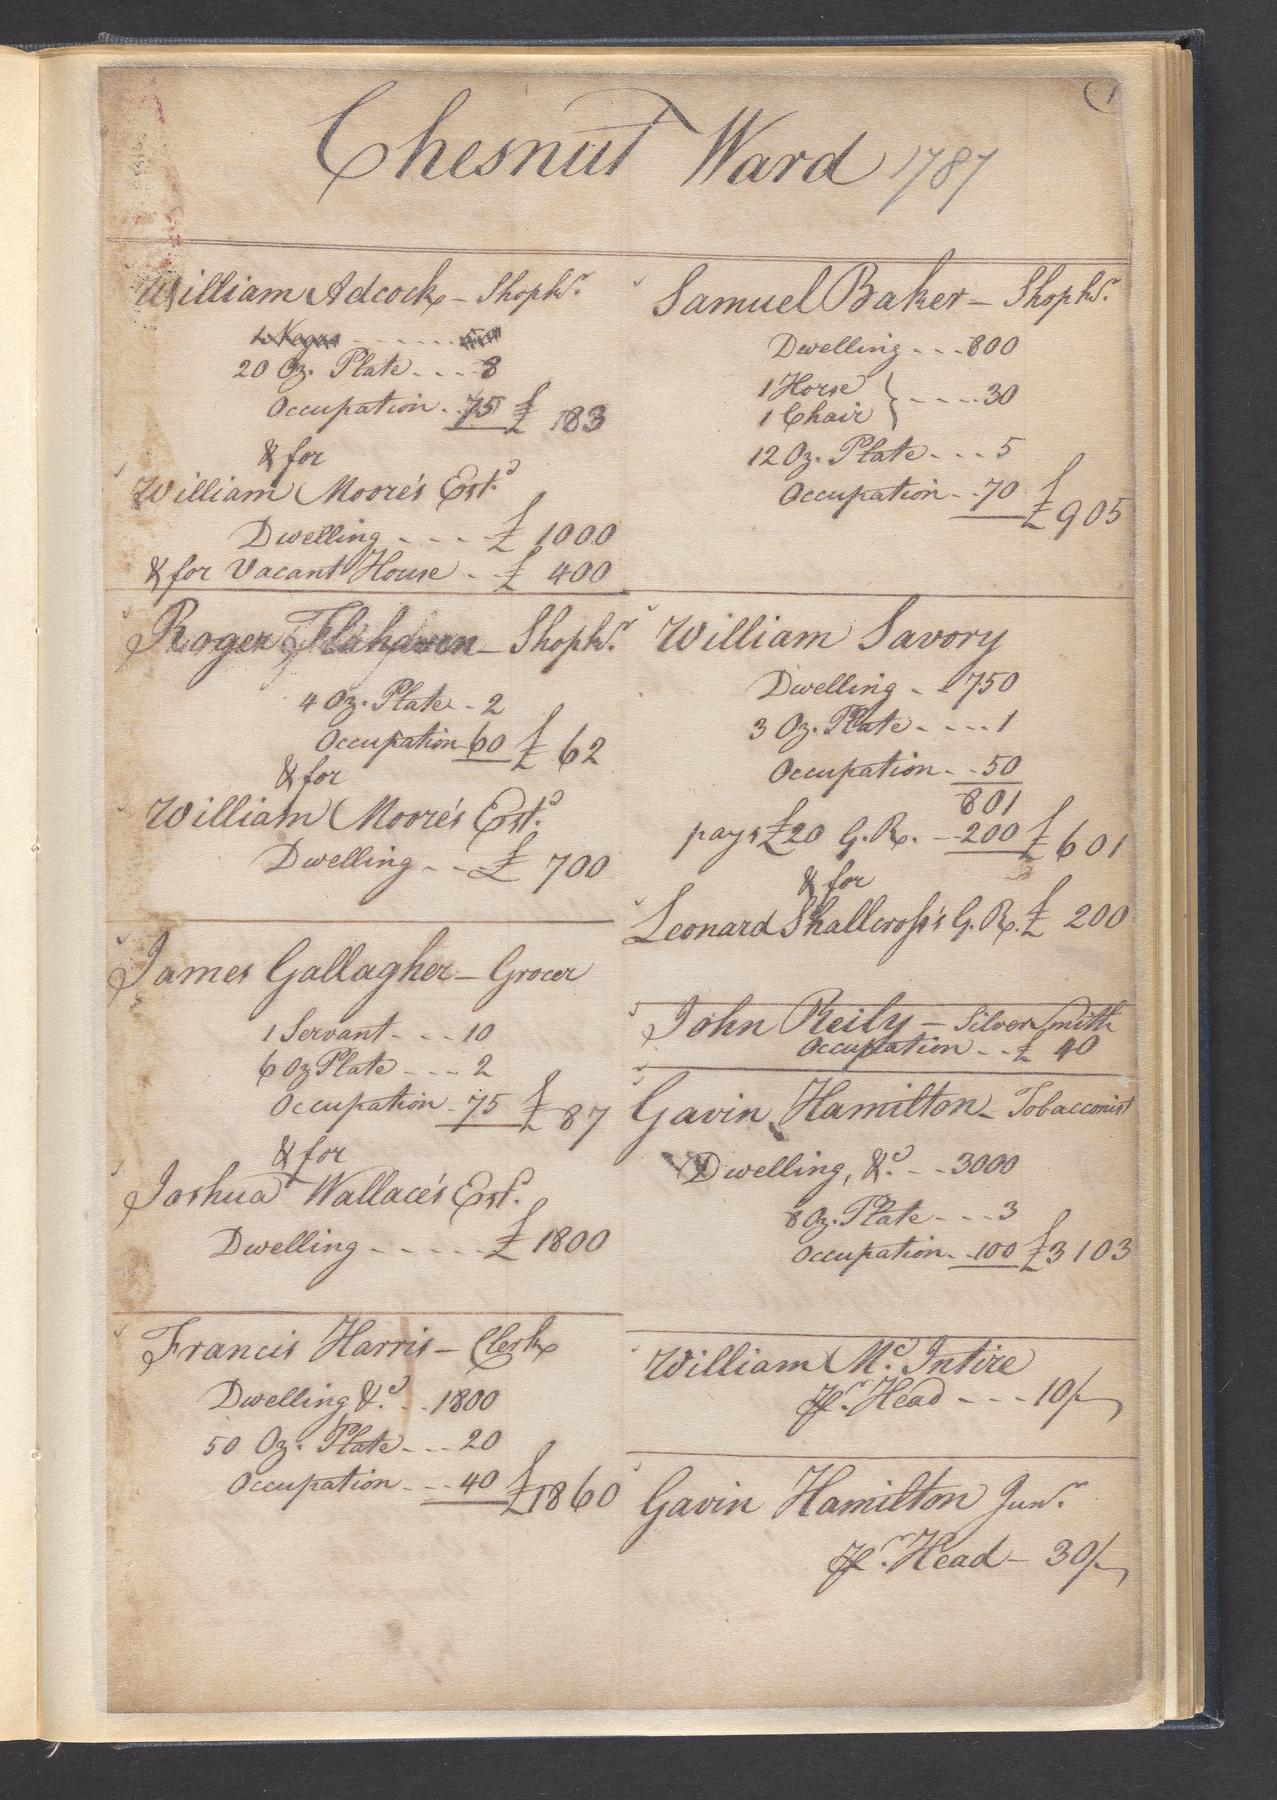 1
Chesnut Ward 1787
William Adcock – Shopkr.
1 Negro - - - - - -
20 Oz. Plate - - - - 8
Occupation - - 75 £ 183
& for
William Moore's Estd.
Dwelling - - - - £ 1000
& for Vacant House - - £ 400
Roger Flahaven – Shopkr.
4 Oz. Plate - - 2
Occupation 60 £ 62
& for
William Moore's Estd.
Dwelling - - - £ 700
James Gallagher – Grocer
1 Servant - - - 10
6 Oz Plate - - - 2
Occupation - 75 £ 87
& for
Joshua Wallace's Estd.
Dwelling - - - - - - £ 1800
Francis Harris – Clerk
Dwelling &c. - - 1800
50 Oz. Plate - - - 20
Occupation - - - 40 £1860
Samuel Baker – Shopkr.
Dwelling - - - 800
1 Horse
1 Chair } - - - - 30
12 Oz. Plate - - - 5
Occupation - - 70 £ 905
William Savory
Dwelling - - 750
3 Oz. Plate - - - - 1
Occupation - - 50
801
pays £20 G. R. - 200 £ 601
& for
Leonard Shallcross's G. R. £ 200
John Reily – Silver Smith
Occupation - - £ 40
Gavin Hamilton – Tobacconist
Dwelling, &c. - - 3000
8 Oz. Plate - - - 3
Occupation - - 100 £3103
William Mc. Intire
Pr. Head - - - 10/-
Gavin Hamilton Junr.
Pr. Head – 30/-